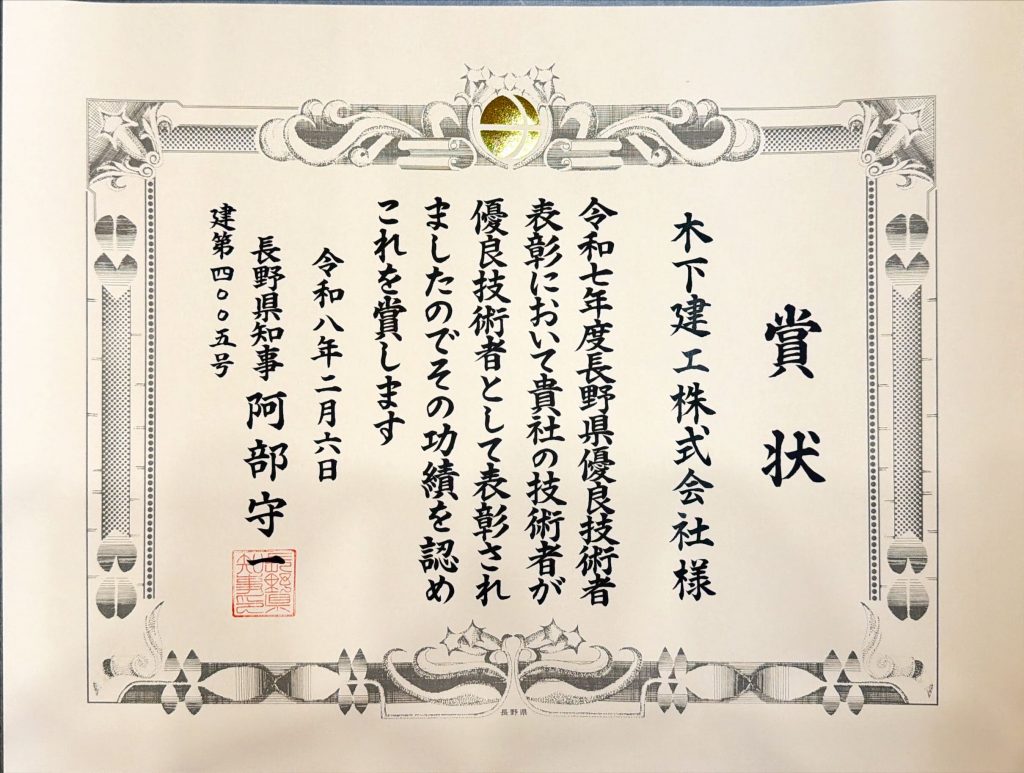 賞状
木下建工株式会社様
令和七年度長野県優良技術者
表彰において貴社の技術者が
優良技術者として表彰され
ましたのでその功績を認め
これを賞します
令和八年二月六日
長野県知事 阿部守一
長野県知事之印
建第四〇〇五号
長野県